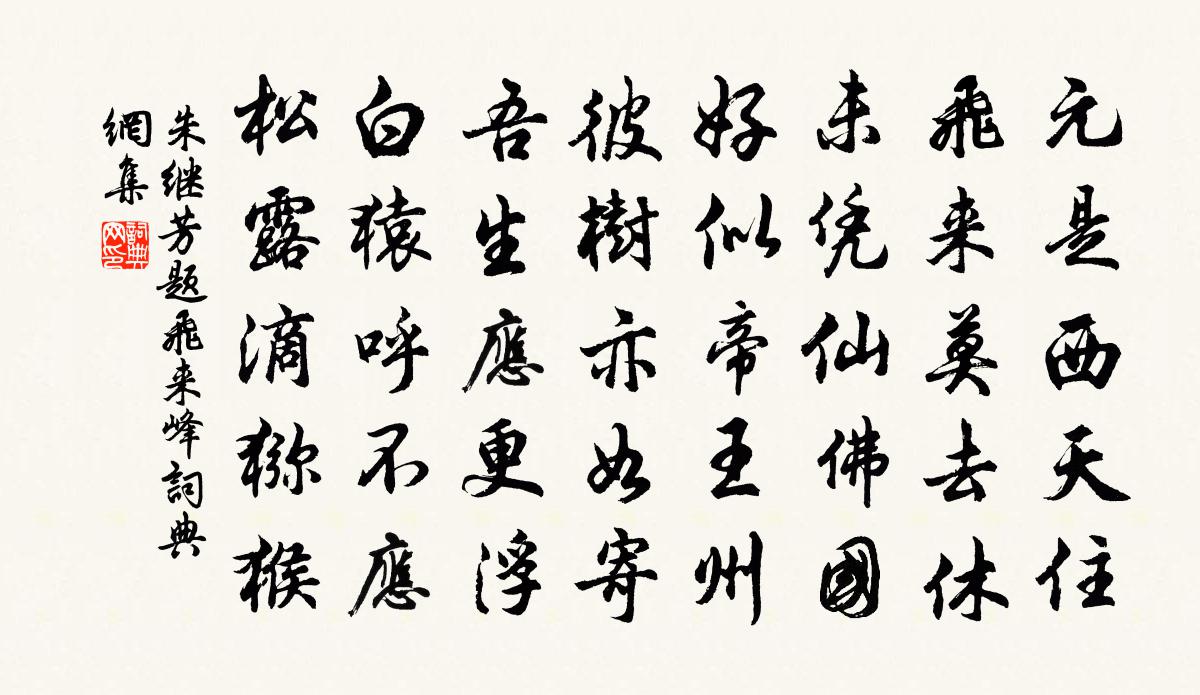 元是西天住
飛来莫去休
未凭仙佛國
好似帝王州
彼樹亦如寄
吾生應更浮
白猿呼不應
松露滴猕猴
朱继芳题飛来峰詞典
網集
詞典
网印